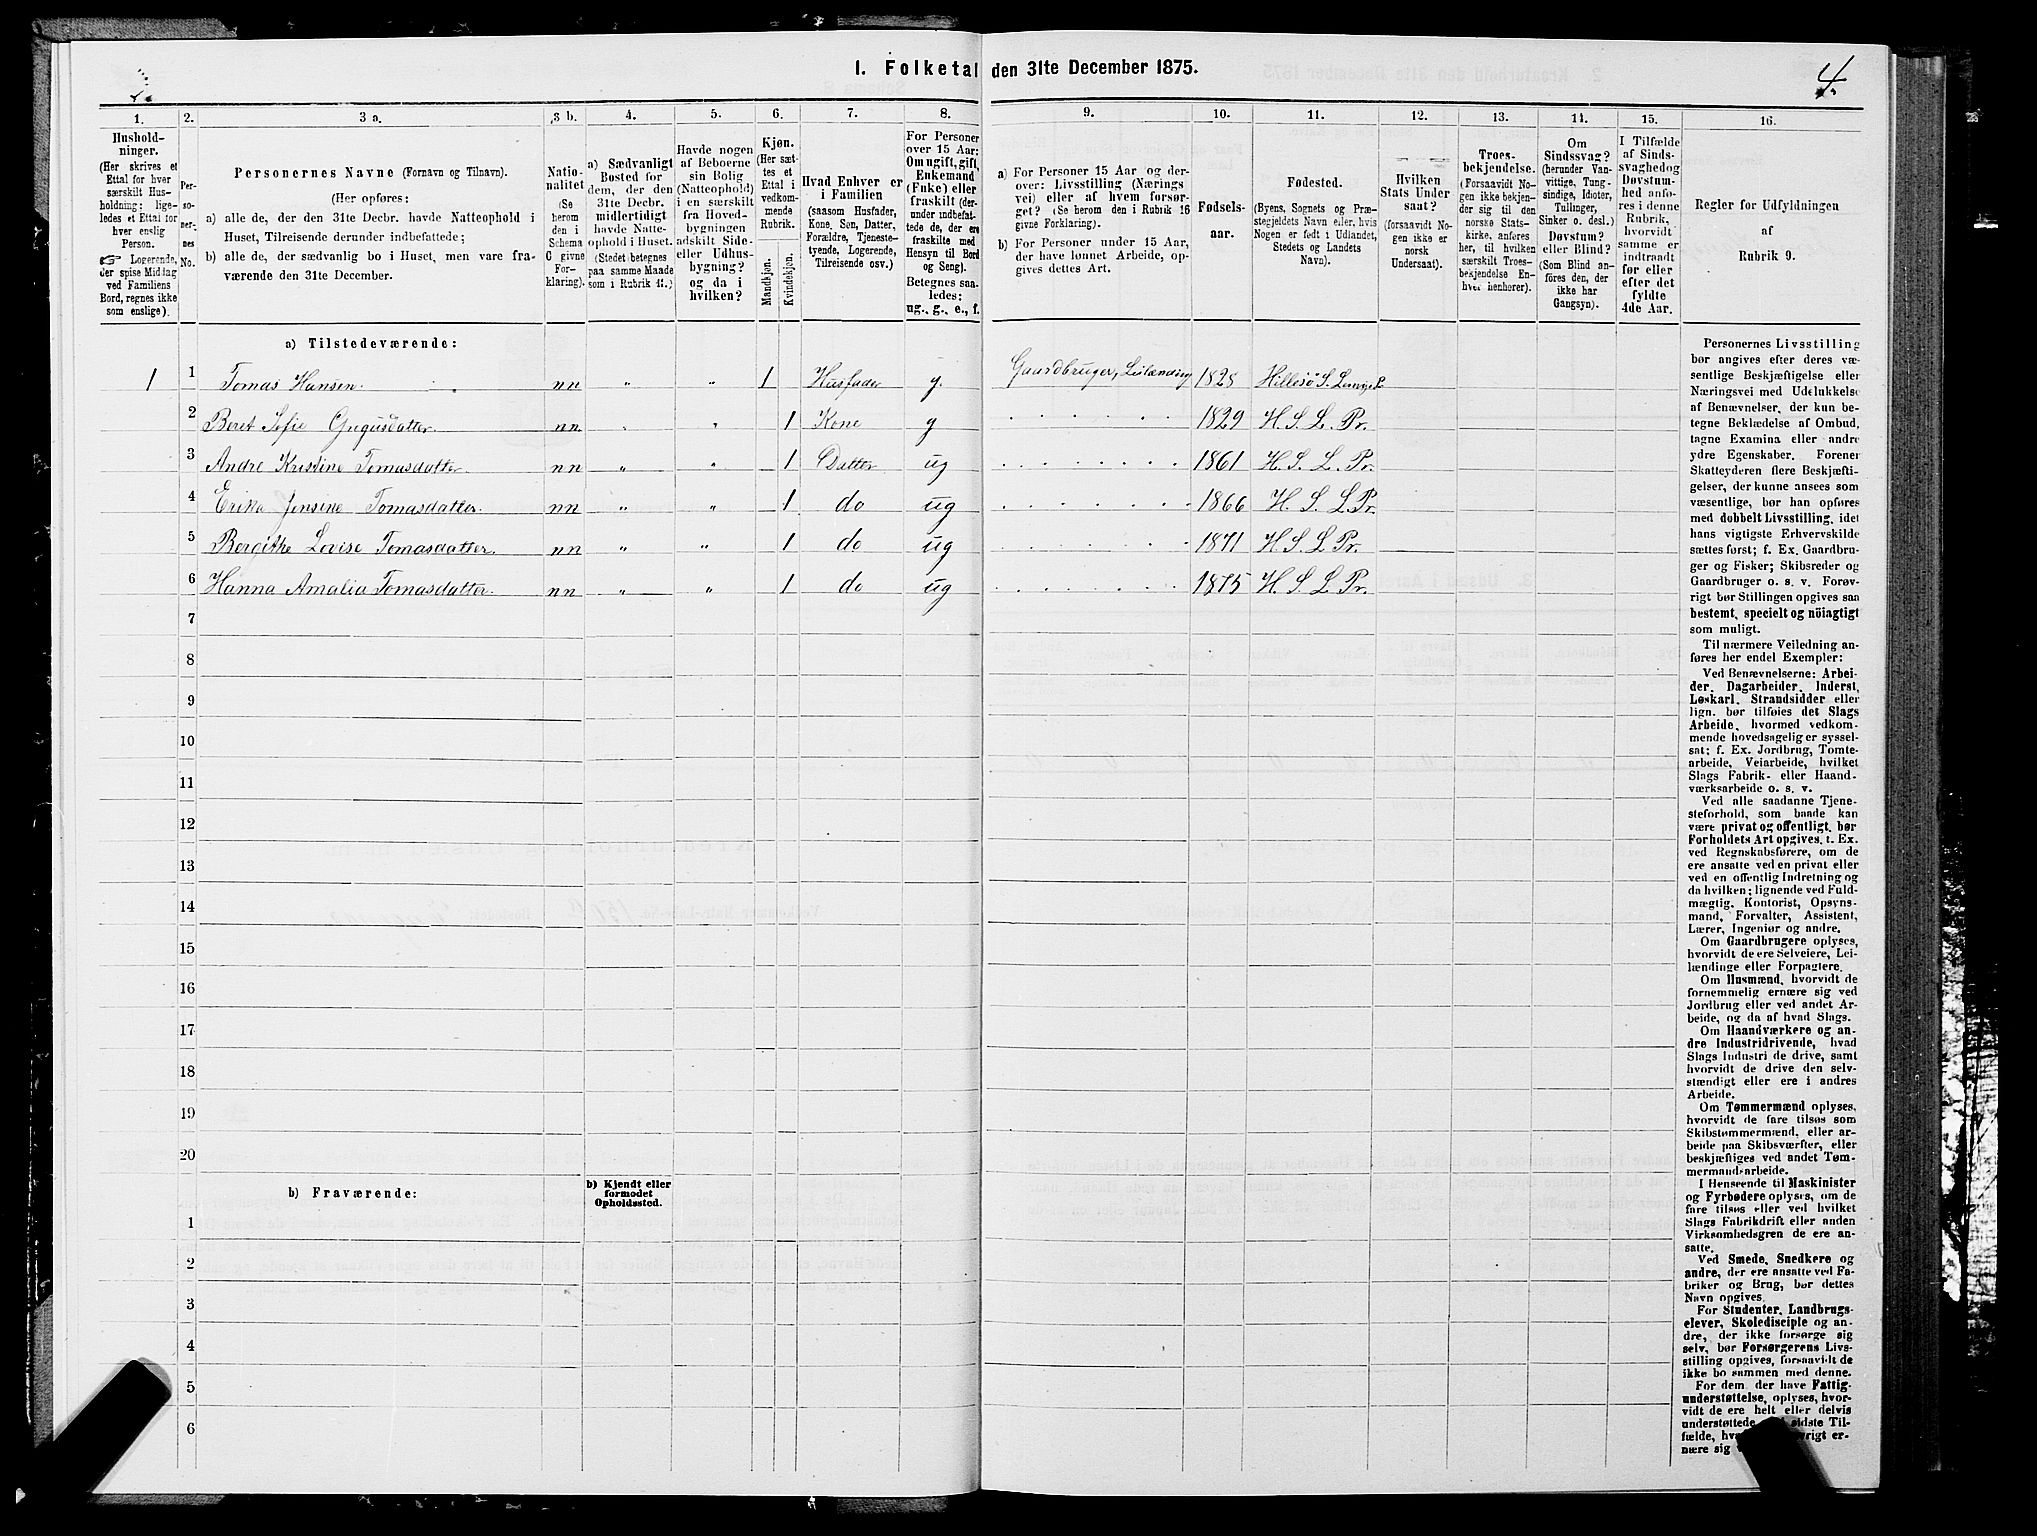 I. Folketal den 31te December 1875.
4.
1. 2. 3 a. 3 b. 4. 5. 6. 7. 8. 9. 10. 11. 12. 13. 14. 15. 16.
Hushold-
ninger.
(Her skrives et
Ettal for hver
særskilt Hus-
holdning; lige-
ledes et Ettal for
hver enslig
Person.
☞ Logerende,
der spise Middag
ved Familiens
Bord, regnes ikke
som enslige).
Per-
so-
ner-
nes
No.
Personernes Navne (Fornavn og Tilnavn).
(Her opføres:
a) alle de, der den 31te Decbr. havde Natteophold i
Huset, Tilreisende derunder indbefattede;
b) alle de, der sædvanlig bo i Huset, men vare fra-
værende den 31te December.
Natio-
nalitet
(Se
herom
den i
Schema
C givne
For-
klaring).
a) Sædvanligt
Bosted for
dem, der den
31te Decbr.
midlertidigt
havde Natte-
ophold i Huset.
(Stedet betegnes
paa samme Maade
som i Rubrik 11.)
Havde nogen
af Beboerne
sin Bolig
(Natteophold)
i en særskilt
fra Hoved-
bygningen
adskilt Side-
eller Udhus-
bygning?
og da i
hvilken?
Kjøn.
(Her sæt-
tes et
Ettal i
vedkom-
mende
Rubrik.
Mandkjøn.
Kvindekjøn.
Hvad Enhver er
i Familien
(saasom Husfader,
Kone, Søn, Datter,
Forældre, Tjeneste-
tyende, Logerende,
Tilreisende osv.)
For Personer
over 15 Aar:
Om ugift, gift,
Enkemand
(Enke) eller
fraskilt (der-
under indbefat-
tede de, der ere
fraskilte med
Hensyn til Bord
og Seng).
Betegnes saa-
ledes:
ug., g., e., f.
a) For Personer 15 Aar og der-
over: Livsstilling (Nærings
vei) eller af hvem forsør-
get? (Se herom den i Rubrik 16
givne Forklaring).
b) For Personer under 15 Aar,
der have lønnet Arbeide, op-
gives dettes Art.
Fødsels-
aar.
Fødested.
(Byens, Sognets og Præ-
stegjeldets Navn eller, hvis
Nogen er født i Udlandet,
Stedets og Landets
Navn).
Hvilken
Stats Under
saat?
(forsaavidt No-
gen ikke er
norsk
Undersaat).
Troes-
bekjendelse.
(Forsaavidt No-
gen ikke bekjen-
der sig til den
norske Stats-
kirke, anføres
her, til hvilken
særskilt Troes-
bekjendelse En-
hver henhører).
Om
Sindssvag?
(herunder Van-
vittige, Tung-
sindige, Idioter,
Tullinger,
Sinker o. desl.)
Døvstum?
eller Blind?
(Som Blind an-
føres den, der
ikke har
Gangsyn).
I Tilfælde
af Sinds-
svaghed og
Døvstum-
hed anfø-
res i denne
Rubrik,
hvorvidt
samme er
indtraadt
før eller
efter det
fyldte
4de Aar.
Regler for Udfyldningen
af
Rubrik 9.
a) Tilstedeværende:
1 1 Tomas Hansen. nn " " 1 Husfader g. Gaardbruger, Leilænding 1828 Hillesö S.
2 Beret Sofie nn. " " 1 Kone g 1829 H. S. L. Pr.
3 Andre Kristine Tomasdatter nn " " 1 Datter ug 1861 H. S. L. Pr.
4 Erika Jensine Tomasdatter. nn " " 1 do ug 1866 H. S. L Pr.
5 Bergithe Lovise Tomasdatter. nn " " 1 do ug 1871 H. S. L Pr.
6 Hanna Amalia Tomasdatter. nn " " 1 do ug 1875 H. S. L Pr.
7
8
9
10
11
12
13
14
15
16
17
18
19
20
b) Fraværende:
b) Kjendt eller
formodet
Opholdssted.
1
2
3
4
5
6
Personernes Livsstilling
bør angives efter deres væ-
sentlige Beskjæftigelse eller
Næringsvei med Udelukkelse
af Benævnelser, der kun be-
tegne Beklædelse af Ombud,
tagne Examina eller andre
ydre Egenskaber. Forener
Skatteyderen flere Beskjæfti-
gelser, der kunne ansees som
væsentlige, bør han opføres
med dobbelt Livsstilling, idet
hans vigtigste Erhvervskilde
sættes først; f. Ex. Gaardbru-
ger og Fisker; Skibsreder og
Gaardbruger o. s. v. Forøv-
rigt bør Stillingen opgives saa
bestemt, specielt og nöiagtigt
som muligt.
Til nærmere Veiledning an-
føres her endel Exempler:
Ved Benævnelserne: Arbei-
der, Dagarbeider, Inderst,
Løskarl, Strandsidder eller
lign. bør tilføies det Slags
Arbeide, hvormed vedkom-
mende hovedsagelig er syssel-
sat; f. Ex. Jordbrug, Tomte-
arbeide, Veiarbeide, hvilket
Slags Fabrik- eller Haand-
værksarbeide o. s. v.
Ved alle saadanne Tjene-
steforhold, som baade kan
være privat og offentligt, bør
Forholdets Art opgives, t. Ex.
ved Regnskabsførere, om de
ere ansatte ved en privat eller
ved en offentlig Indretning og
da hvilken; lignende ved Fuld-
mægtig, Kontorist, Opsyns-
mand, Forvalter, Assistent,
Lærer, Ingeniør og andre.
Om Gaardbrugere oplyses,
hvorvidt de ere Selveiere, Lei-
lændinge eller Forpagtere.
Om Husmænd, hvorvidt de
fornemmelig ernære sig ved
Jordbrug eller ved andet Ar-
beide, og da af hvad Slags.
Om Haandværkere og an-
dre Industridrivende, hvad
Slags Industri de drive, samt
hvorvidt de drive den selv-
stændigt eller ere i andres
Arbeide.
Om Tømmermænd oplyses,
hvorvidt de fare tilsøs som
Skibstømmermænd, eller ar-
beide paa Skibsværfter, eller
beskjæftiges ved andet Tøm-
mermandsarbeide.
I Henseende til Maskinister
og Fyrbødere oplyses, om de
fare tilsøs eller ved hvilket
Slags Fabrikdrift eller anden
Virksomhedsgren de ere an-
satte.
Ved Smede, Snedkere og
andre, der ere ansatte ved Fa-
briker og Brug, bør dettes
Navn opgives.
For Studenter, Landbrugs-
elever, Skoledisciple og an-
dre, der ikke forsørge sig
selv, bør Forsørgerens Livs-
stilling opgives, forsaavidt de
ikke bo sammen med denne.
For dem, der have Fattig-
understøttelse, oplyses, hvor-
vidt de ere helt eller delvis
understøttede sidste Til-
fælde, er-
nære sig